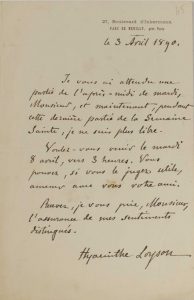 27, Boulevard d'Inkermann
PARC DE NEUILLY, près Paris
le 3 Avril 1890.
Je vous ai attendu une
partie de l'après-midi de mardi,
Monsieur, et maintenant, pendant
cette dernière partie de la Semaine
Sainte, je ne suis plus libre.
Voulez-vous venir le mardi
8 avril, vers 3 heures. Vous
pouvez, si vous le jugez utile,
amener avec vous votre ami.
Recevez, je vous prie, Monsieur,
l'assurance de mes sentiments
distingués.
Hyacinthe Loyson